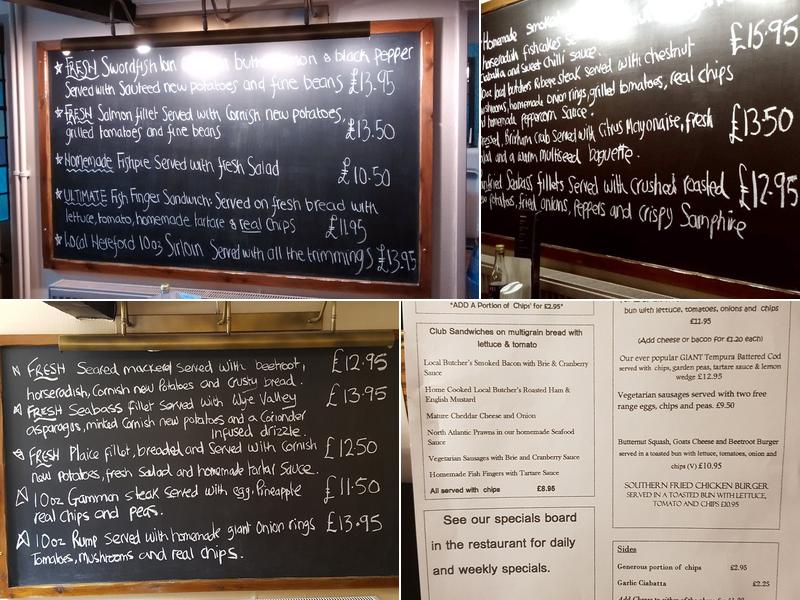 FRESH Swordfish & black pepper
Served with Sauteed new potatoes and fine beans £13.95
FRESH Salmon fillet Served with Cornish new potatoes,
grilled tomatoes and fine beans £13.50
Homemade Fishpie Served with fresh Salad £10.50
ULTIMATE Fish Finger Sandwich. Served on fresh bread with
lettuce, tomato, homemade tartare & real Chips £11.95
Local Hereford 10oz Sirloin Served with all the trimmings £13.95
Homemade smoked
horseradish fishcakes
and Sweet Chilli Sauce.
butchers Ribeye Steak served with chestnut £15.95
homemade onion rings, grilled tomatoes, real chips
homemade peppercorn Sauce.
Brixham Crab Served with Citrus Mayonaise, fresh £13.50
and a warm multiseed baguette.
Seabass fillets Served with crushed roasted £12.95
potatoes, fried onions, Peppers and Crispy Samphire
FRESH Seared mackerel served with beetroot, £12.95
horseradish, Cornish new Potatoes and Crusty bread.
FRESH Seabass fillet Served with Wye Valley £13.95
asparagus, minted Cornish new potatoes and a Coriander
Infused drizzle.
FRESH Plaice fillet, breaded and Served with Cornish £12.50
new potatoes, fresh Salad and homemade tartar Sauce.
10oz Gammon Steak Served with egg, Pineapple £11.50
real chips and peas.
10oz Rump Served with homemade giant Onion rings £13.95
Tomatoes, Mushrooms and real chips.
*ADD A Portion of Chips' for £2.95*
Club Sandwiches on multigrain bread with
lettuce & tomato
Local Butcher's Smoked Bacon with Brie & Cranberry
Sauce
Home Cooked Local Butcher's Roasted Ham &
English Mustard
Mature Cheddar Cheese and Onion
North Atlantic Prawns in our homemade Seafood
Sauce
Vegetarian Sausages with Brie and Cranberry Sauce
Homemade Fish Fingers with Tartare Sauce
All served with chips £8.95
See our specials board
in the restaurant for daily
and weekly specials.
bun with lettuce, tomatoes, onions and chips
£11.95
(Add cheese or bacon for £1.20 each)
Our ever popular GIANT Tempura Battered Cod
served with chips, garden peas, tartare sauce & lemon
wedge £12.95
Vegetarian sausages served with two free
range eggs, chips and peas. £9.50
Butternut Squash, Goats Cheese and Beetroot Burger
served in a toasted bun with lettuce, tomatoes, onions and
chips (V) £10.95
SOUTHERN FRIED CHICKEN BURGER
SERVED IN A TOASTED BUN WITH LETTUCE,
TOMATO AND CHIPS £10.95
Sides
Generous portion of chips £2.95
Garlic Ciabatta £2.25